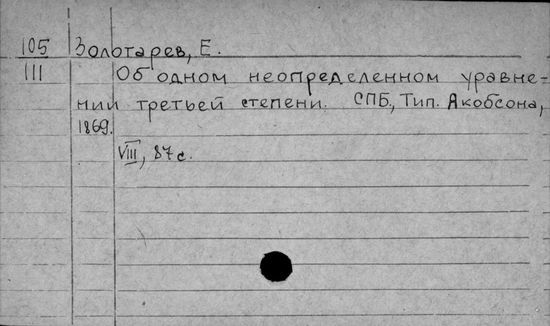 105 Золотарев, Е.
III Об одном неопределенном уравне-
нии третьей степени. СПБ., Тип. Якобсона,
1869.
VIII, 87 с.